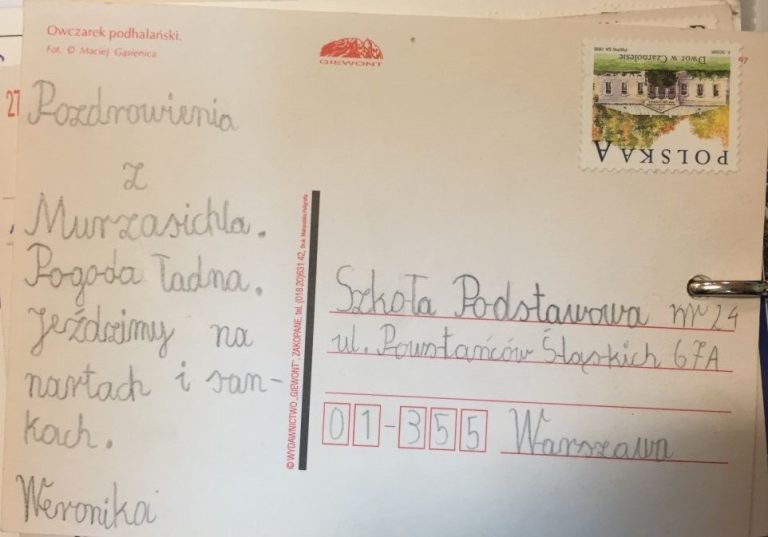 Owczarek podhalański.
Fot. © Maciej Gąsienica
GIEWONT
Dwór w Czarnolesie
POLSKA A
27
Pozdrowienia
z
Murzasichla.
Pogoda ładna.
Jeździmy na
nartach i san-
kach.
Weronika
© WYDAWNICTWO „GIEWONT”, ZAKOPANE, tel. (018 20) 631 42,
Szkoła Podstawowa nr 24
ul. Powstańców Śląskich 67A
01-355 Warszawa